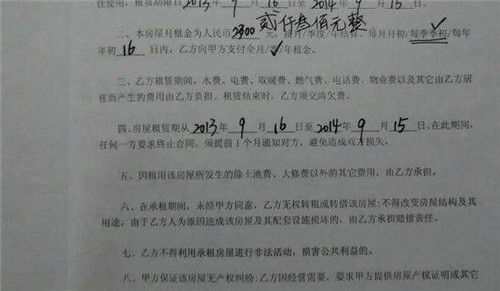 使用，租赁期限自2013年9月16日至2014年9月15日。
贰仟叁佰元整
二、本房屋月租金为人民币2300元，按月/季度/年结算。每月月初/每季季初/每年
年初16日内，乙方向甲方支付全月/季/年租金。
三、乙方租赁期间，水费、电费、取暖费、燃气费、电话费、物业费以及其它由乙方居
住而产生的费用由乙方负担。租赁结束时，乙方须交清欠费。
四、房屋租赁期从2013年9月16日至2014年9月15日。在此期间，
任何一方要求终止合同，须提前1个月通知对方，避免造成双方损失。
五、因租用该房屋所发生的除土地费、大修费以外的其它费用，由乙方承担。
六、在承租期间，未经甲方同意，乙方无权转租或转借该房屋；不得改变房屋结构及其
用途，由于乙方人为原因造成该房屋及其配套设施损坏的，由乙方承担赔偿责任。
七、乙方不得利用承租房屋进行非法活动，损害公共利益的。
八、甲方保证该房屋无产权纠纷；乙方因经营需要，要求甲方提供房屋产权证明或其它